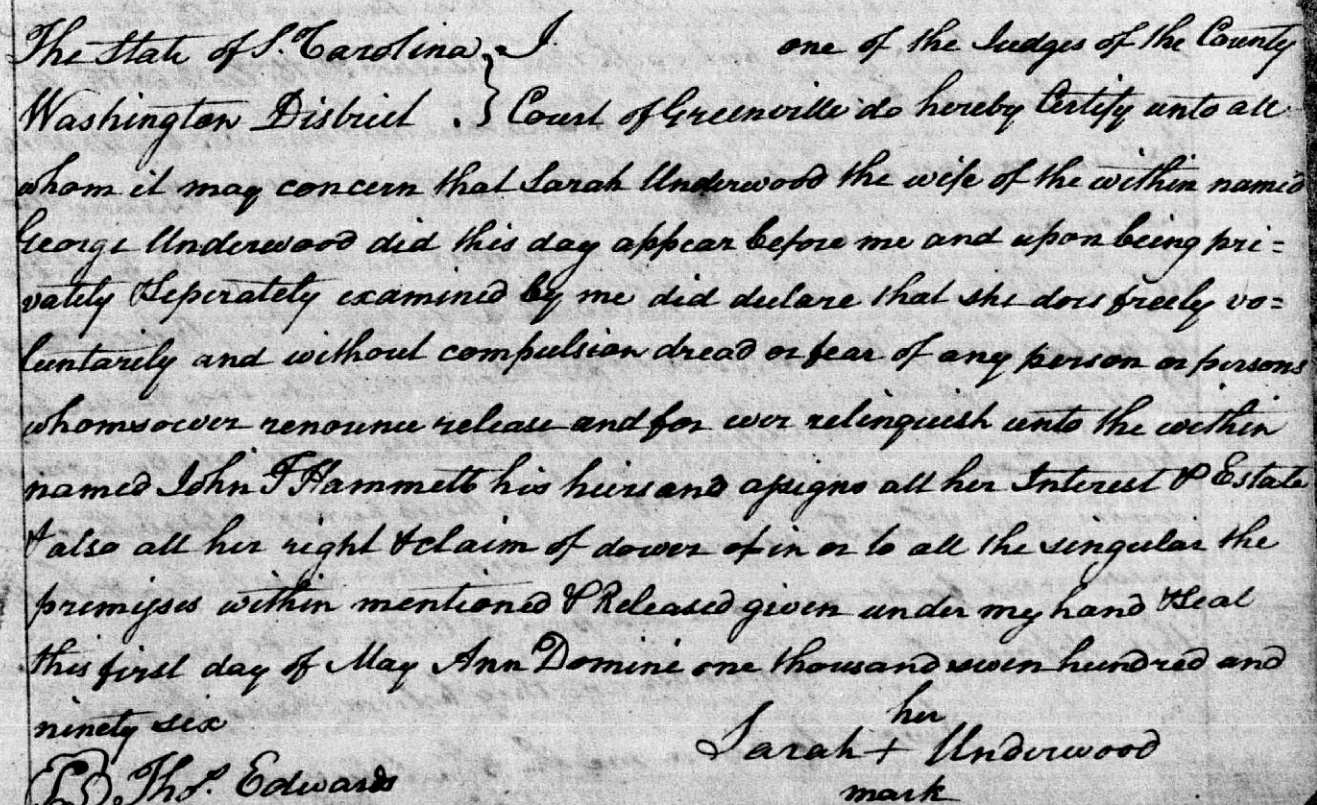 The State of S. Carolina } I one of the Judges of the County
Washington District . } Court of Greenville do hereby Certify unto all
whom it may concern that Sarah Underwood the wife of the within named
George Underwood did this day appear before me and upon being pri=
vately & Seperately examined by me did declare that she does freely vo=
luntarily and without compulsion dread or fear of any person or persons
whomsoever renounce release and for ever relinquish unto the within
named John F Hammett his heirs and assigns all her Interest & Estate
& also all her right & claim of dower of in or to all the singular the
premises within mentioned & Released given under my hand & Seal
this first day of May Ann Domini one thousand seven hundred and
ninety six
her
Sarah + Underwood
mark
LS Thos. Edwards